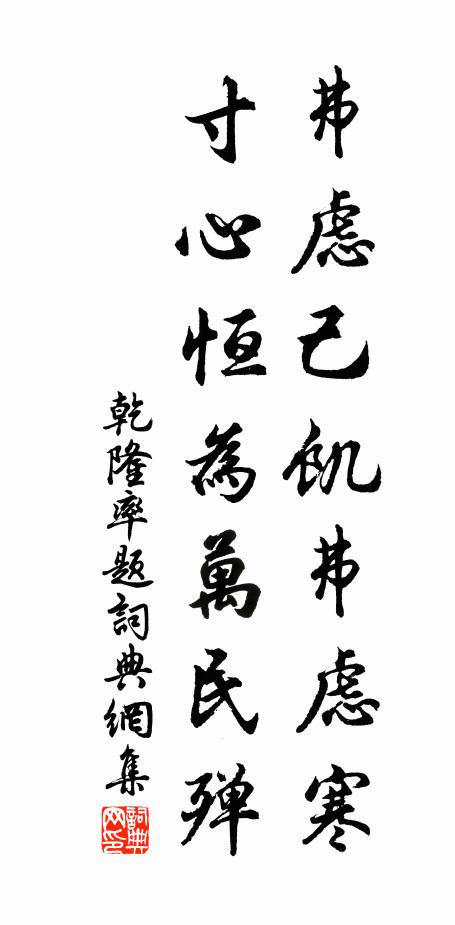 弗慮己飢弗慮寒
寸心恒為萬民殫
乾隆率題詞典網集
詞典
网印